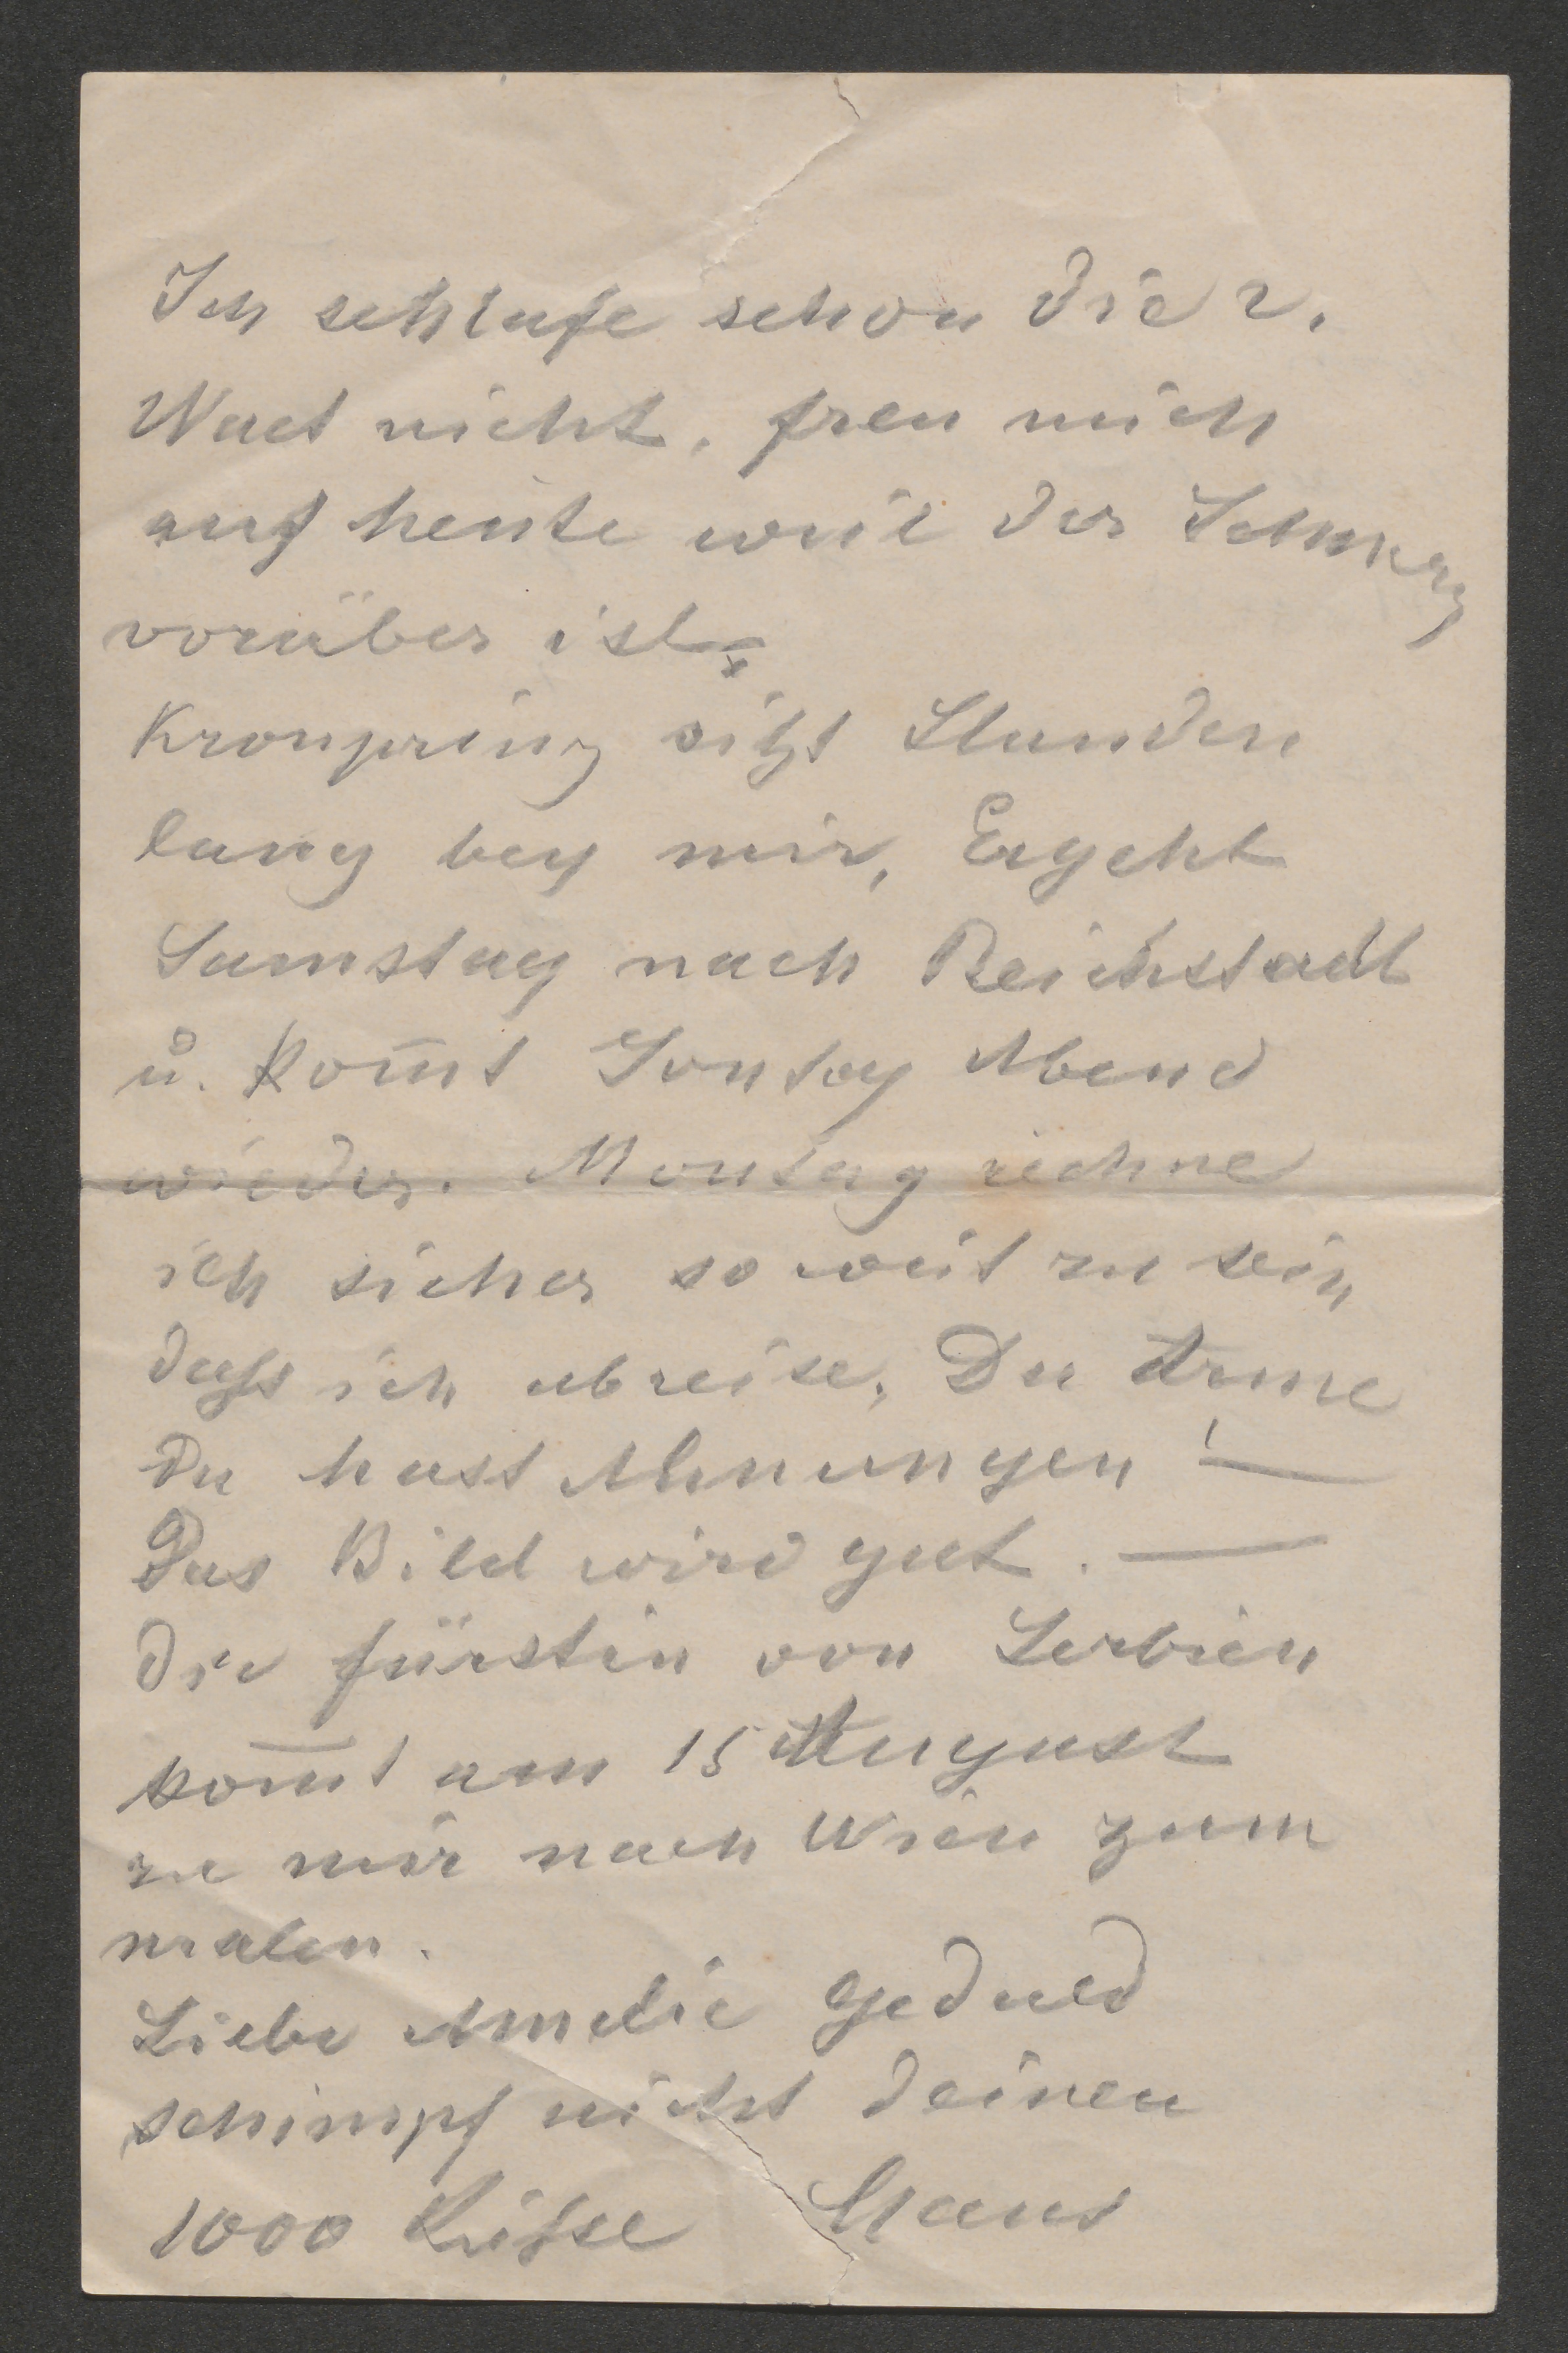 Ich schlafe schon die 2.
Nact nicht, freu mich
auf heute weil der Schmerz
vorüber ist.
Kronprinz sitzt Stunden
lang bey mir, Er geht
Samstag nach Reichstadt
u. kom̅t Sontag Abend
wieder. Montag rechne
ich sicher so weit zu sein
daſs ich abreise. Du Arme
Du hast Ahnungen! —
Das Bild wird gut. —
Die fürstin von Serbien
kom̅t am 15 August
zu mir nach Wien zum
malen.
Liebe Amelie geduld
schimpf nicht deinen
1000 Küſse Hans